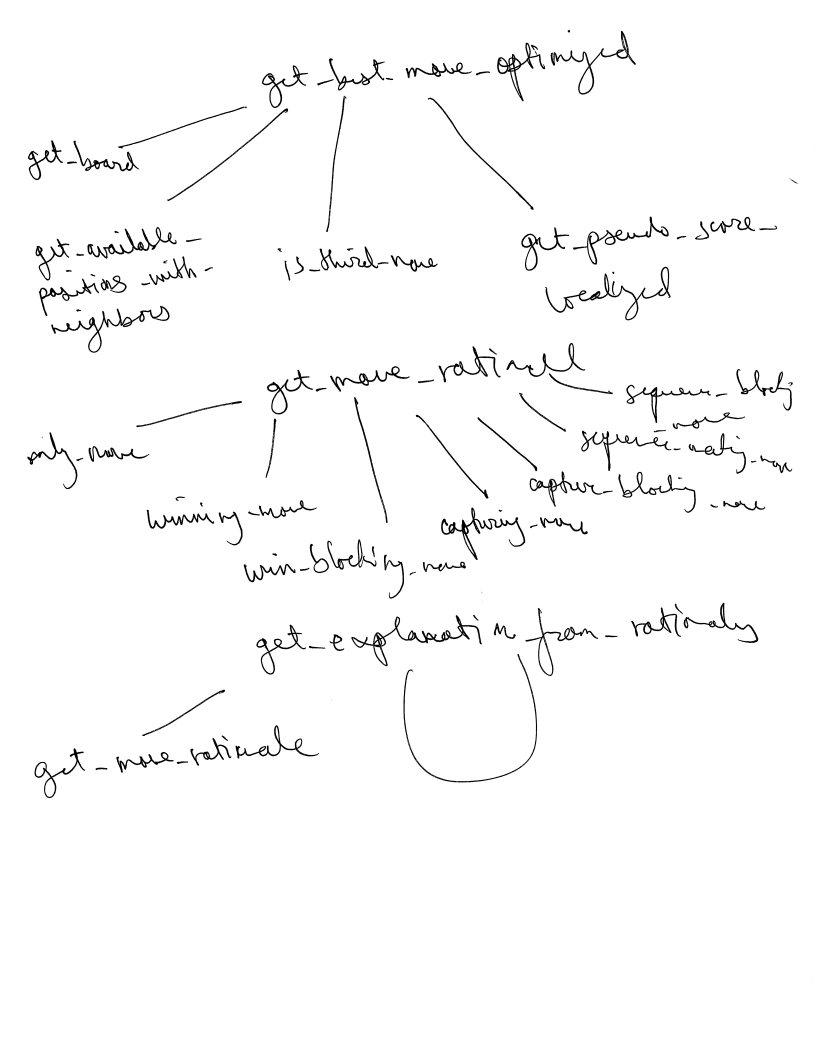 get_best_move_optimized
get_board
get_available_
positions_with_
neighbors
is_third_move
get_pseudo_score_
localized
get_move_rationale
sequence_blocking
_move
only_move
sequence_making_move
capture_blocking
_move
winning_move
capturing_move
win_blocking_move
get_explanation_from_rationales
get_move_rationale